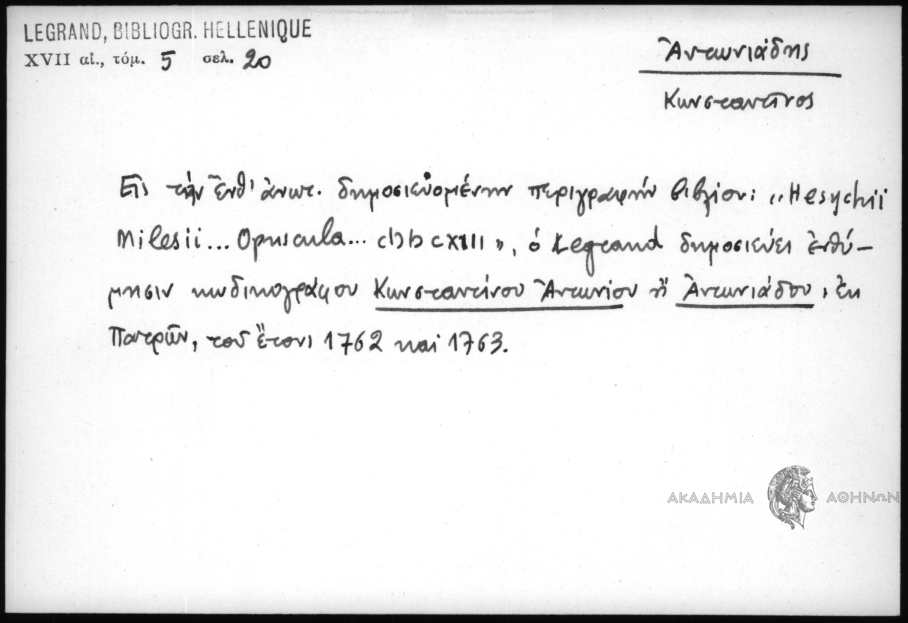 LEGRAND, BIBLIOGR. HELLENIQUE
XVII αἰ., τόμ. 5 σελ. 20
Ἀντωνιάδης
Κωνσταντῖνος
Εἰς τὴν ἔνθ' ἀνωτ. δημοσιευομένην περιγραφὴν βιβλίου: „Hesychii
Milesii... Opuscula... cIɔ Iɔ cXIII", ὁ Legrand δημοσιεύει ἐνθύ-
μησιν κωδικογράφου Κωνσταντίνου Ἀντωνίου ἢ Ἀντωνιάδου, ἐκ
Πατρῶν, τοῦ ἔτους 1762 καὶ 1763.
ΑΚΑΔΗΜΙΑ ΑΘΗΝΩΝ